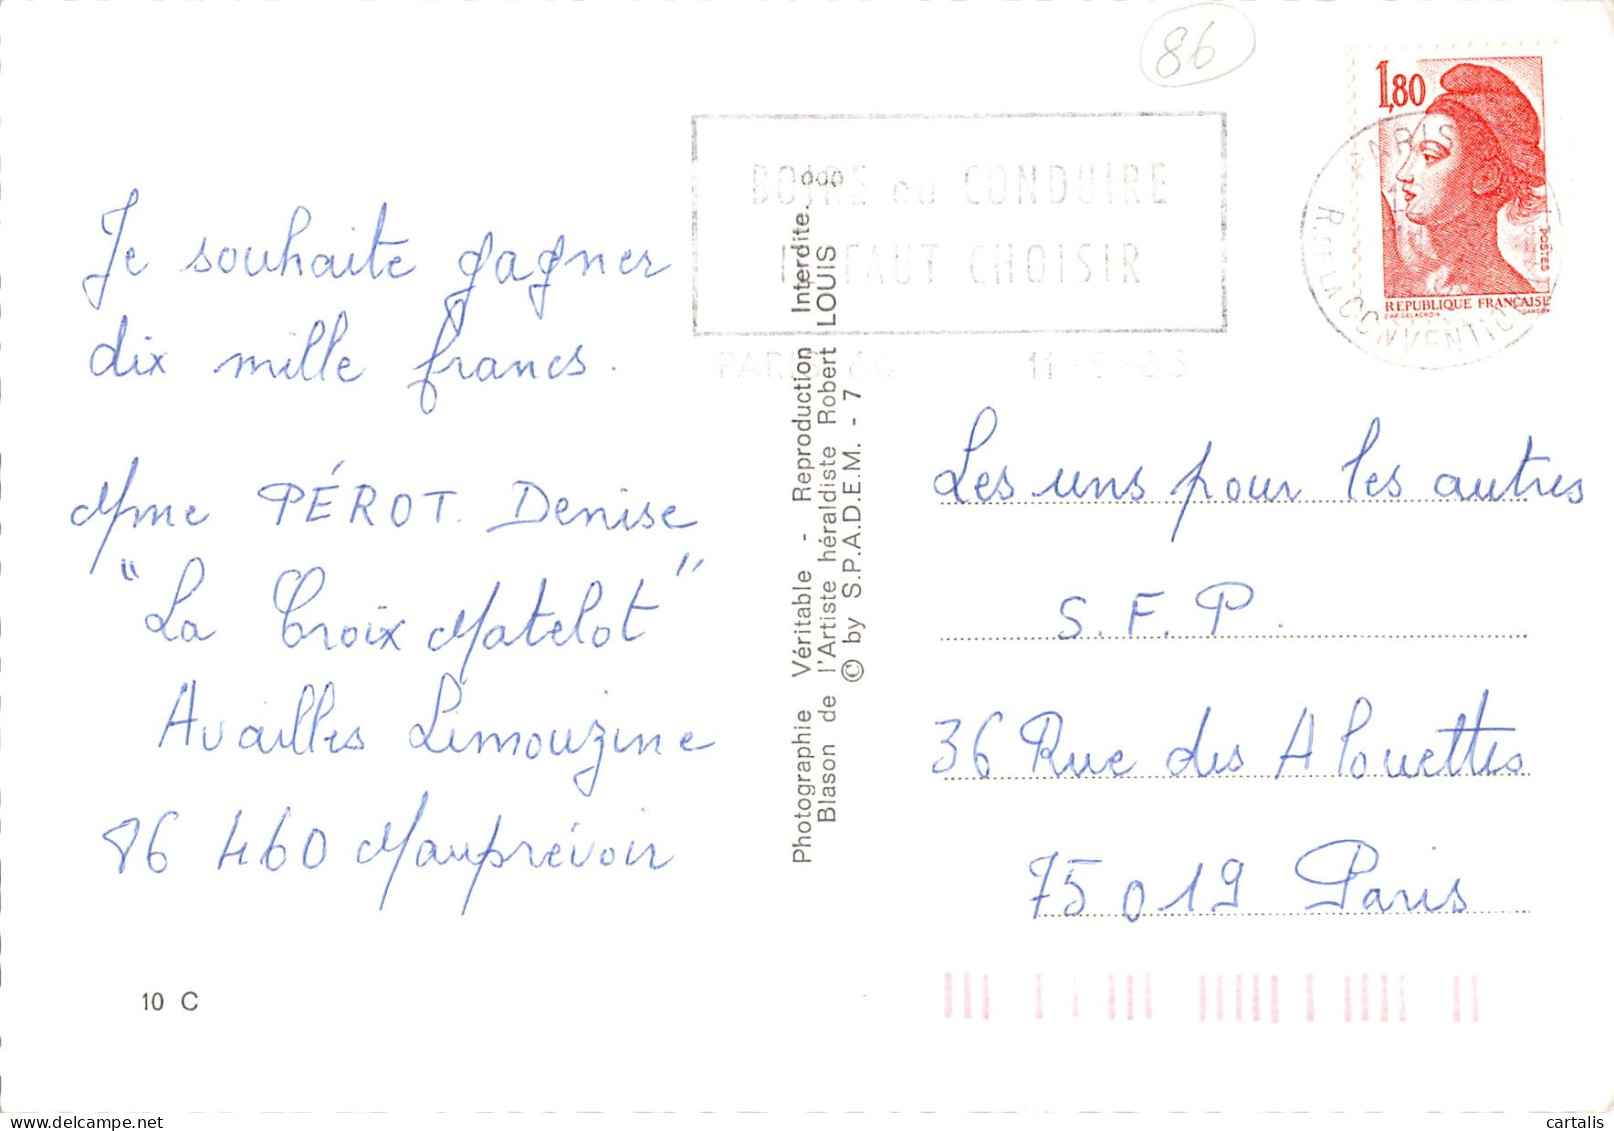 86
1,80
POSTES
REPUBLIQUE FRANÇAISE
BOIRE ou CONDUIRE
IL FAUT CHOISIR
PARIS
R. DE LA CONVENTION
Je souhaite gagner
dix mille francs.
Mme PÉROT. Denise
"La Croix Matelot"
Availles Limouzine
86 460 Mauprévoir
10 C
Photographie Véritable - Reproduction Interdite.
Blason de l'Artiste héraldiste Robert LOUIS
© by S.P.A.D.E.M. - 7
Les uns pour les autres
S.F.P.
36 Rue des Alouettes
75019 Paris
cartalis